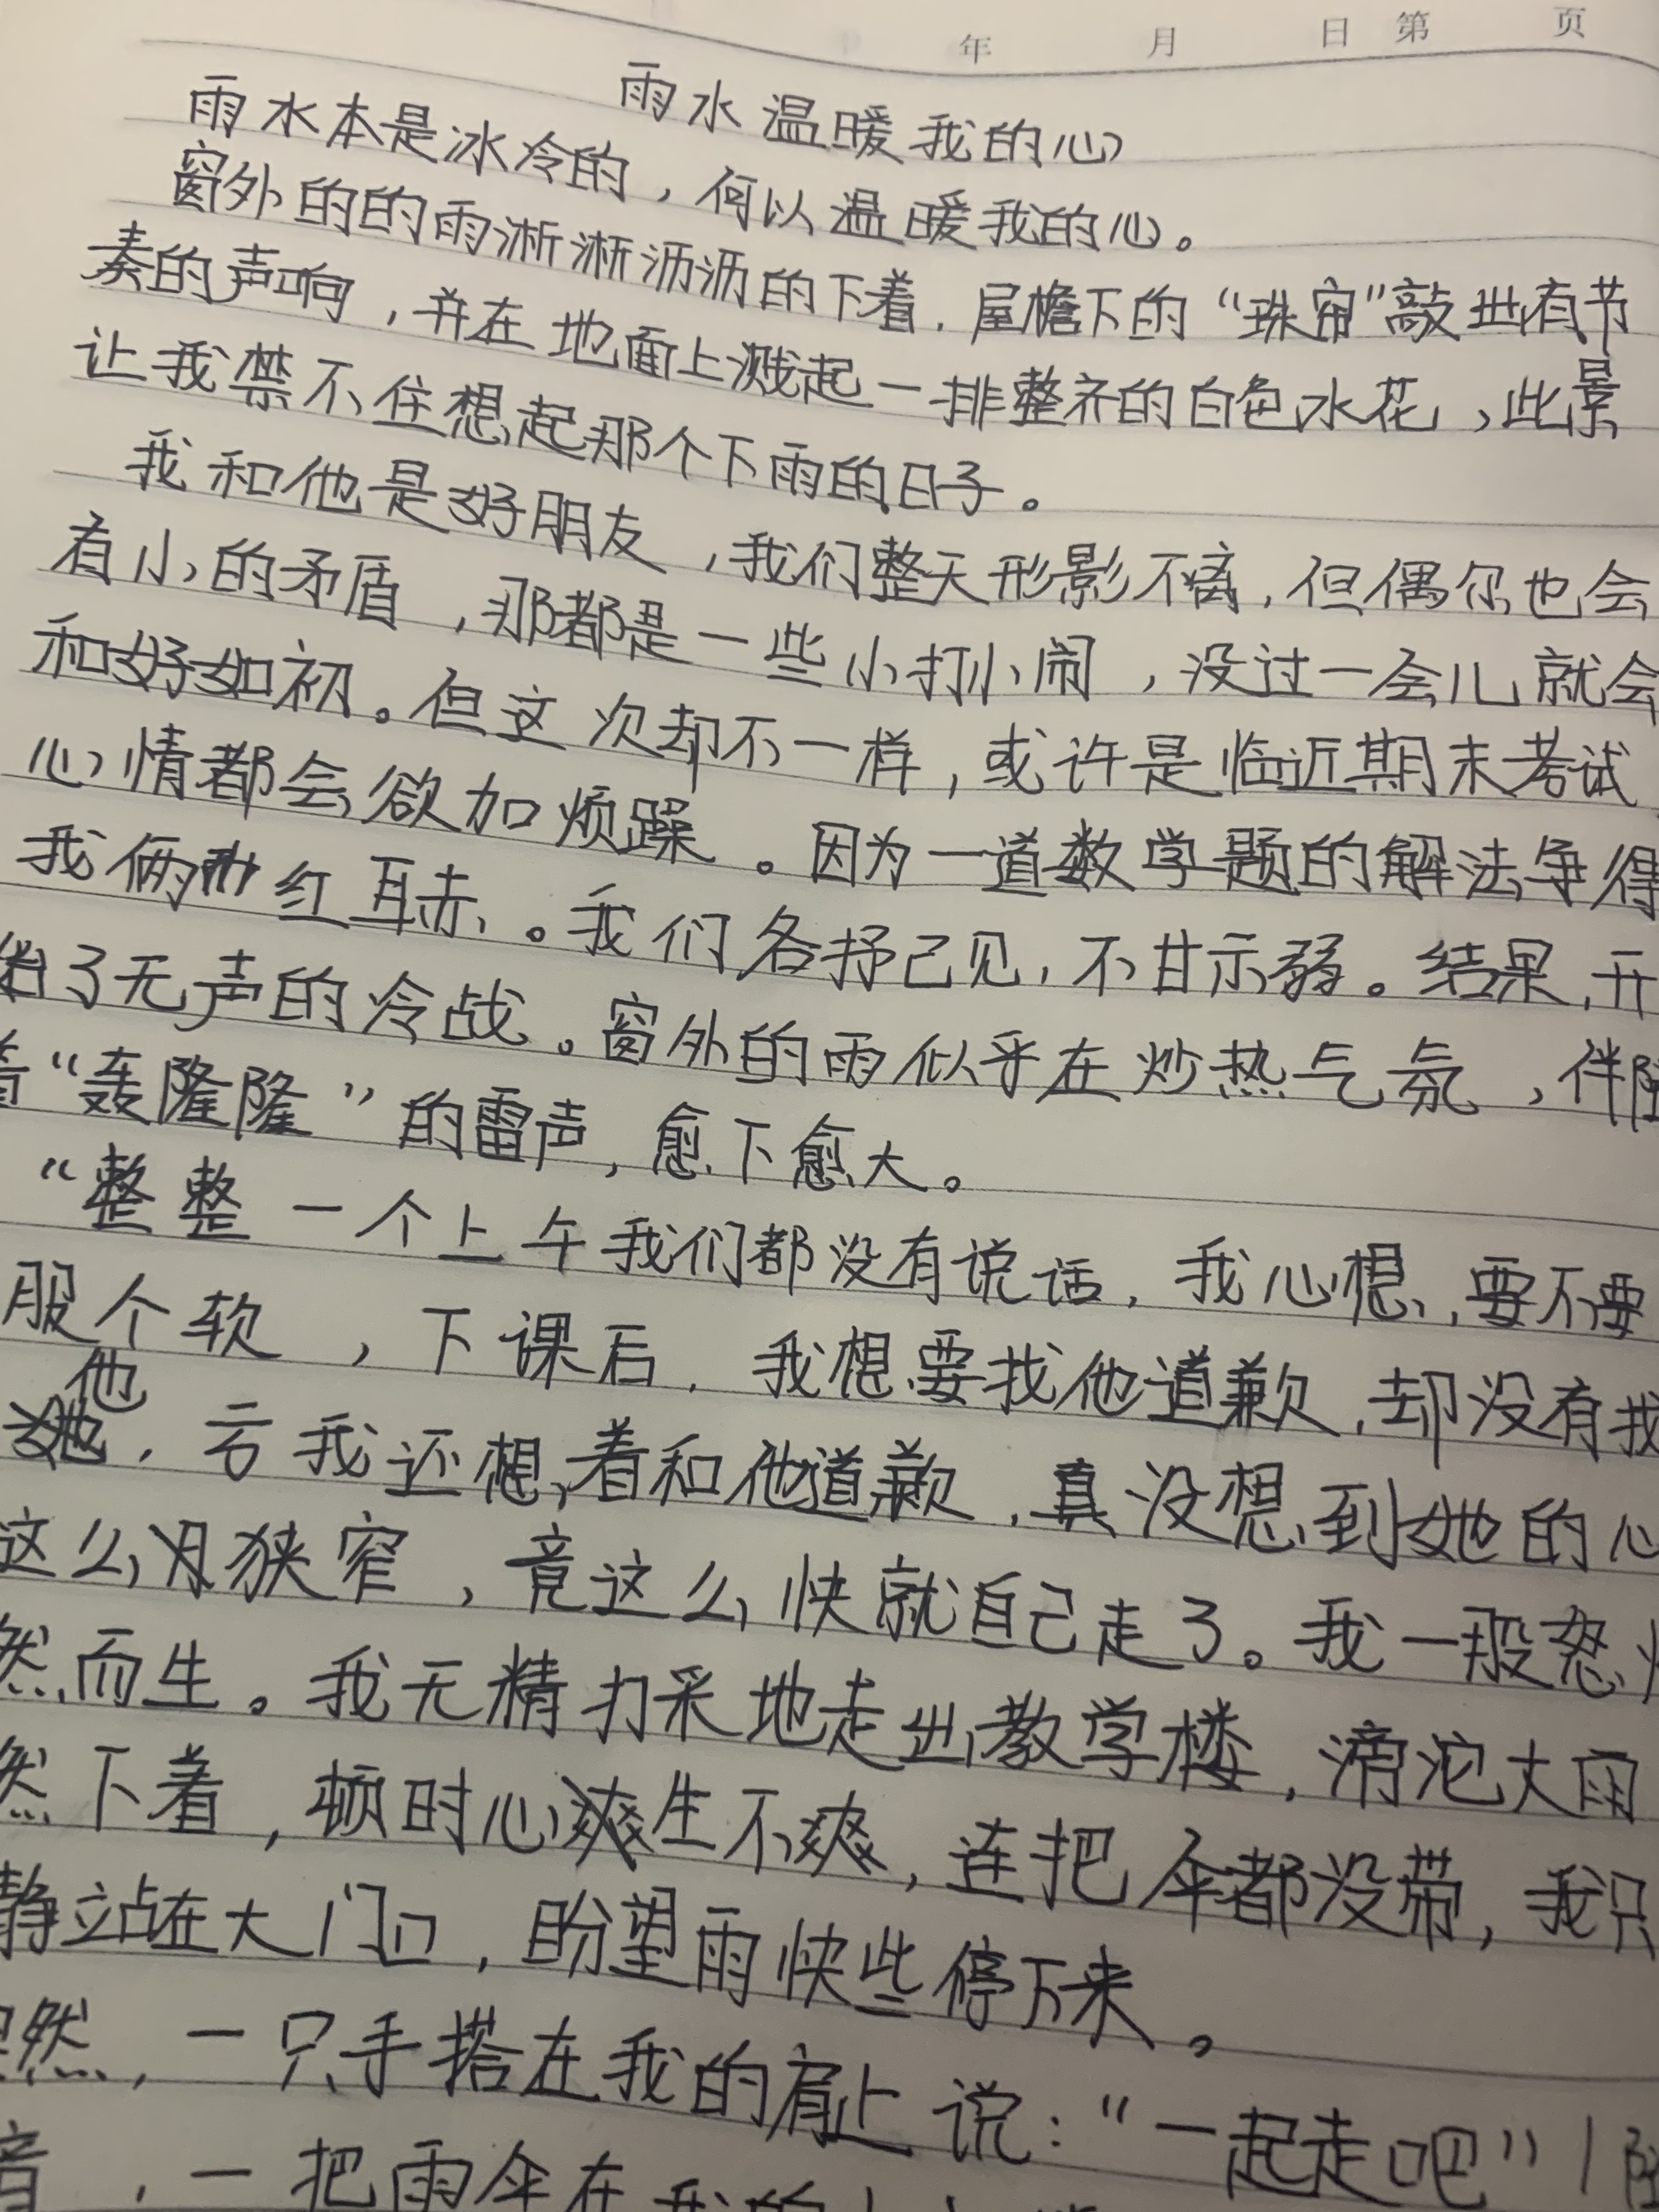 年 月 日 第 页
雨水温暖我的心
雨水本是冰冷的，何以温暖我的心。
窗外的的雨淅淅沥沥的下着，屋檐下的“珠帘”敲出有节
奏的声响，并在地面上溅起一排整齐的白色水花，此景
让我禁不住想起那个下雨的日子。
我和他是好朋友，我们整天形影不离，但偶尔也会
有小的矛盾，那都是一些小打小闹，没过一会儿就会
和好如初。但这次却不一样，或许是临近期末考试
心情都会欲加烦躁。因为一道数学题的解法争得
我俩 红耳赤。我们各抒己见，不甘示弱。结果，开
始了无声的冷战。窗外的雨似乎在炒热气氛，伴随
着“轰隆隆”的雷声，愈下愈大。
“整整一个上午我们都没有说话，我心想，要不要
服个软，下课后，我想要找他道歉，却没有找
他，亏我还想着和他道歉，真没想到她的心
这么 狭窄，竟这么快就自己走了。我一股怒火
然而生。我无精打采地走出教学楼，滂沱大雨
然下着，顿时心 生不爽，连把伞都没带，我只
静立站在大门口，盼望雨快些停下来。
然，一只手搭在我的肩上说：“一起走吧”
，一把雨伞在我的